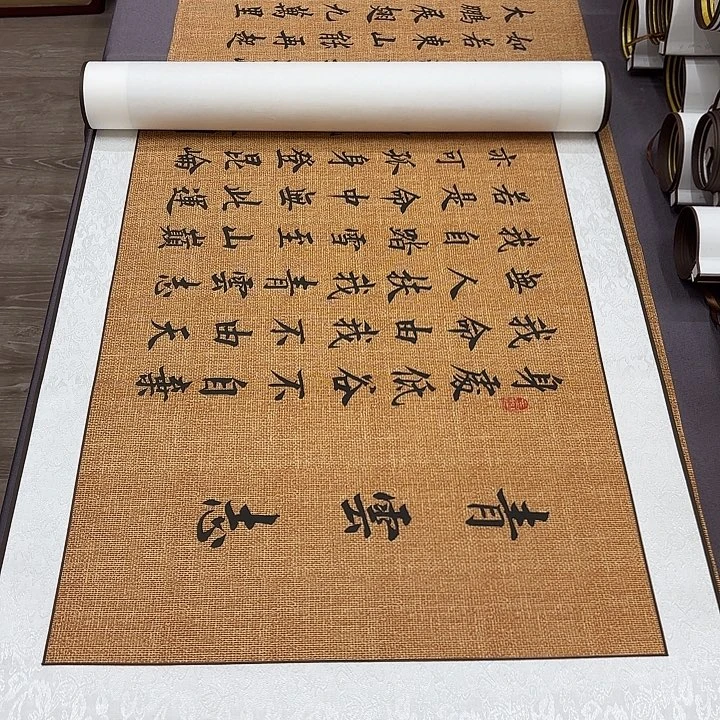 青雲志
身處低谷不自棄
我命由我不由天
無人扶我青雲志
我自踏雪至山巔
若是命中無此運
亦可孤身登昆侖
如若東山能再起
大鵬展翅九萬里